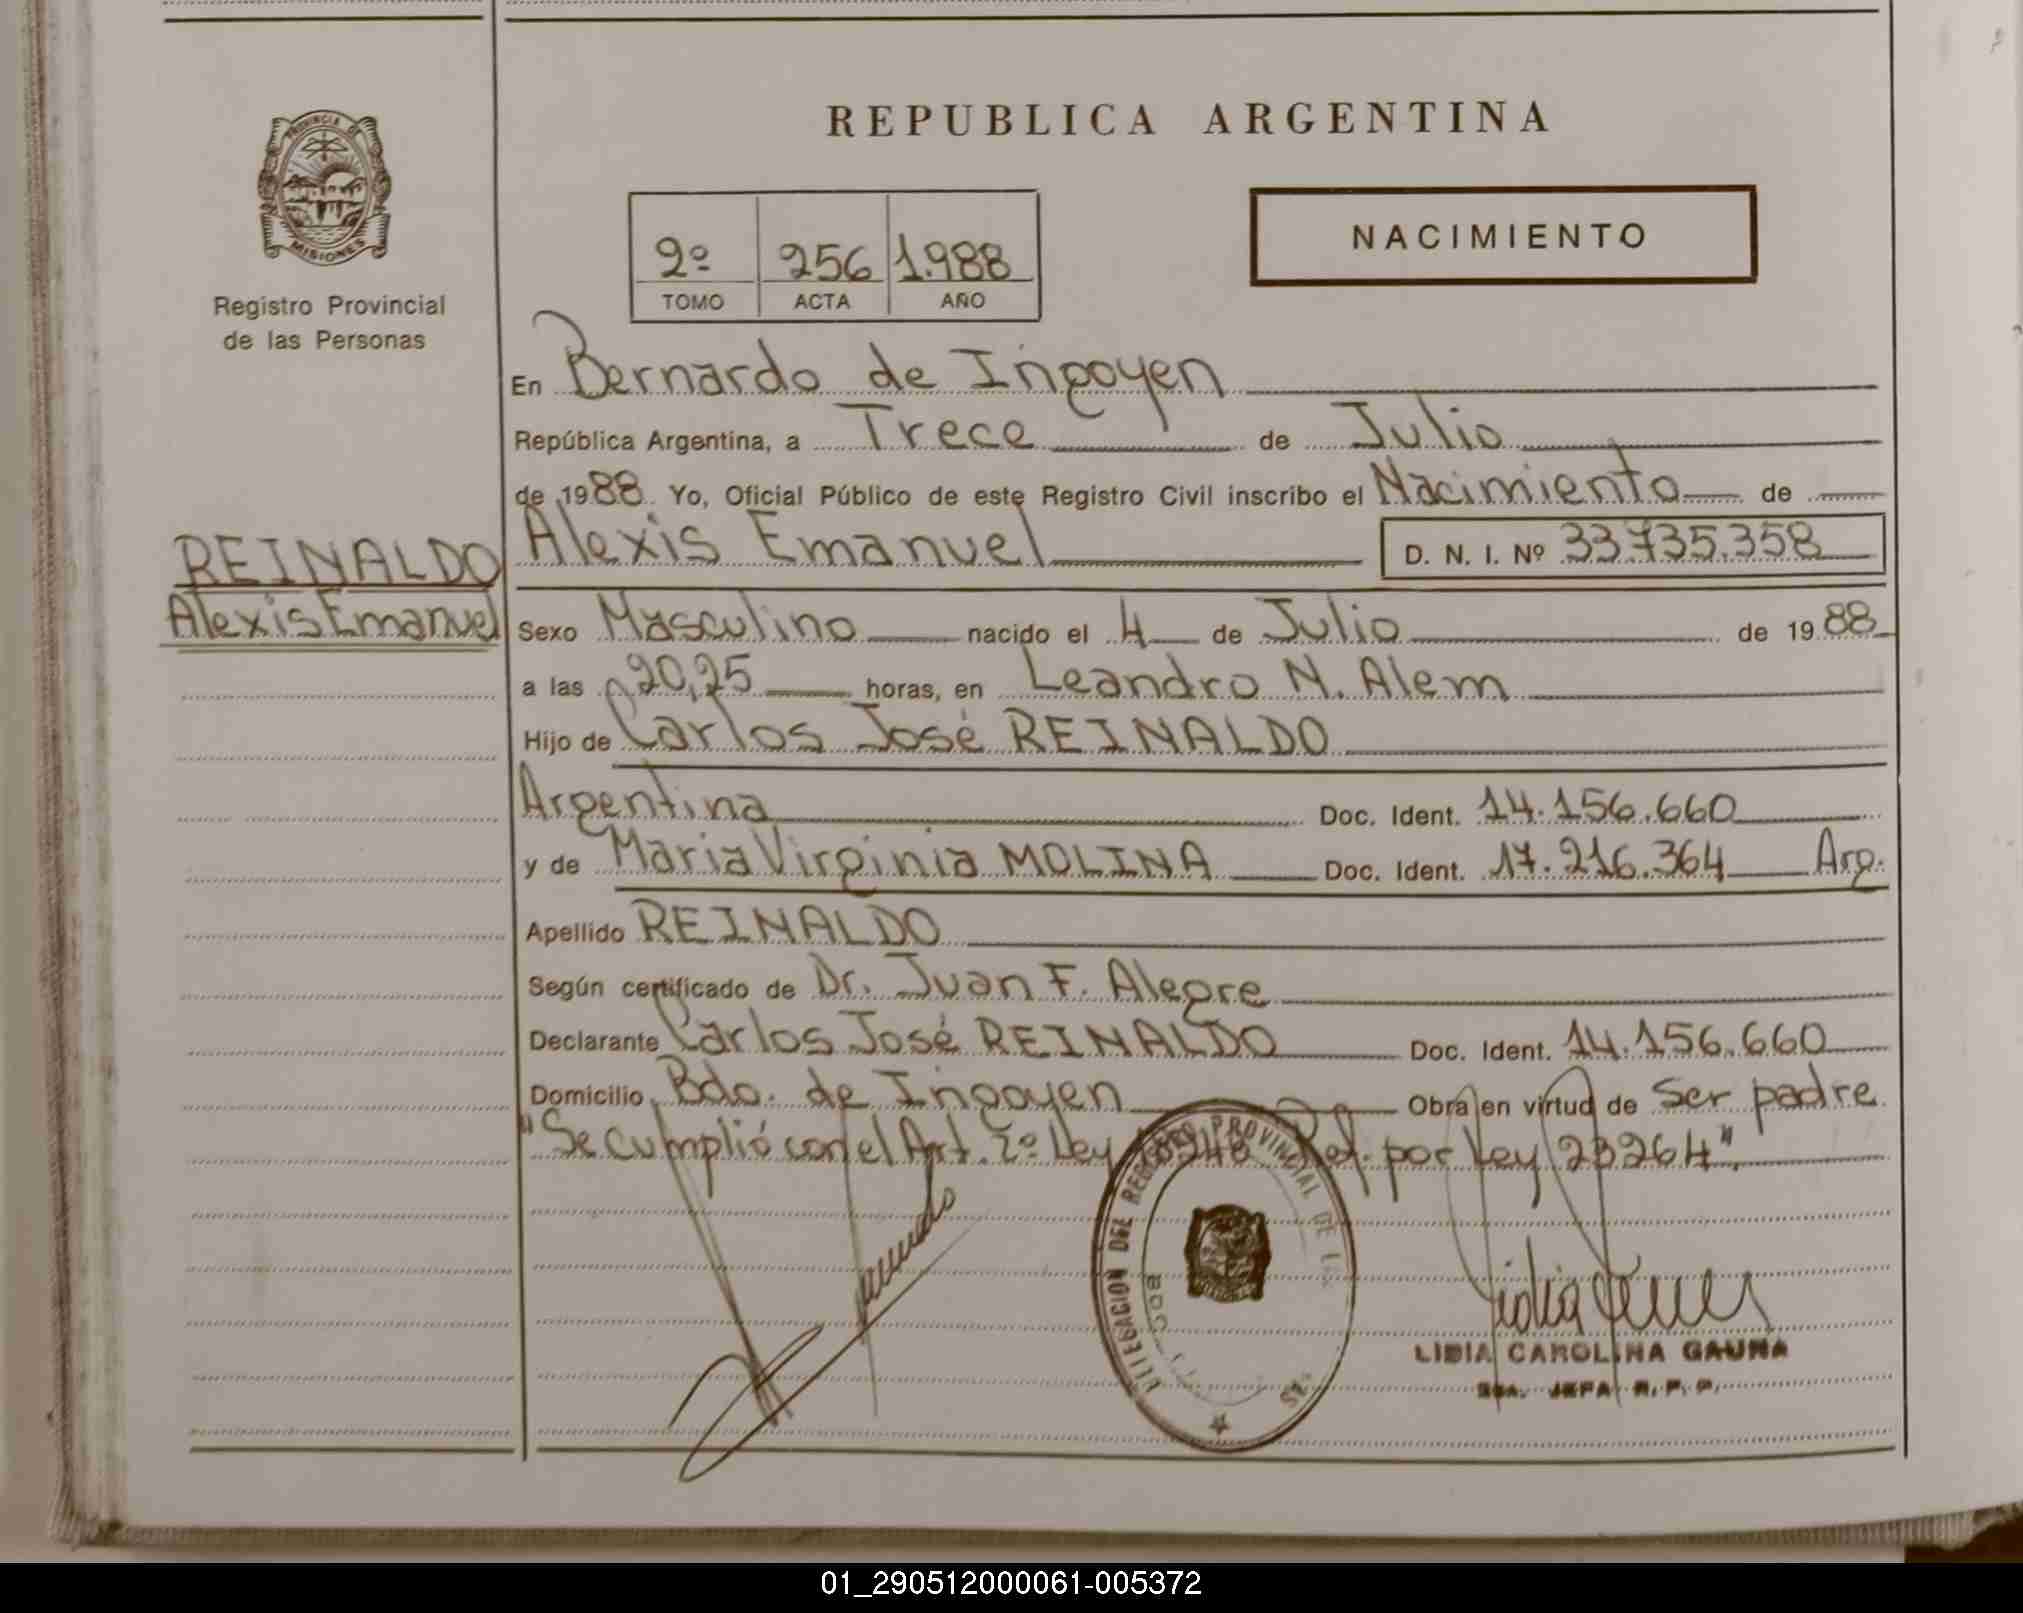 REPUBLICA ARGENTINA
PROVINCIA DE
MISIONES
Registro Provincial
de las Personas
2º 256 1.988
TOMO ACTA AÑO
NACIMIENTO
En Bernardo de Irigoyen
República Argentina, a Trece de Julio
de 1988 Yo, Oficial Público de este Registro Civil inscribo el Nacimiento de
REINALDO
Alexis Emanuel
Alexis Emanuel D. N. I. Nº 33.735.358
Sexo Masculino nacido el 4 de Julio de 1988
a las 20,25 horas, en Leandro N. Alem
Hijo de Carlos José REINALDO
Argentina Doc. Ident. 14.156.660
y de Maria Virginia MOLINA Doc. Ident. 17.216.364 Arg.
Apellido REINALDO
Según certificado de Dr. Juan F. Alegre
Declarante Carlos José REINALDO Doc. Ident. 14.156.660
Domicilio Bdo. de Irigoyen Obra en virtud de ser padre
"Se cumplió con el Art. 2º Ley 18248 Ref. por Ley 23264".
DELEGACION DEL REGISTRO PROVINCIAL DE LAS
LIDIA CAROLINA GAUNA
JEFA R.P.P.
01_290512000061-005372